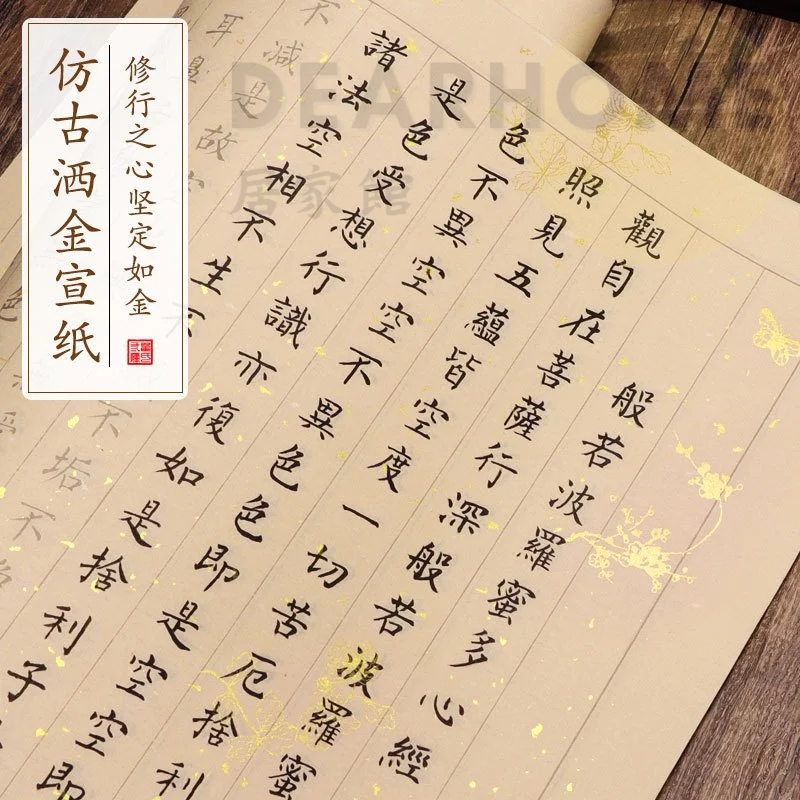 仿古洒金宣纸
修行之心坚定如金
DEARHOME
居家館
般若波羅蜜多心經
觀自在菩薩行深般若波羅蜜
照見五蘊皆空度一切苦厄捨利
色不異空空不異色色即是空空即
是色受想行識亦復如是捨利子
諸法空相不生不不垢不
不減是故空
耳
色